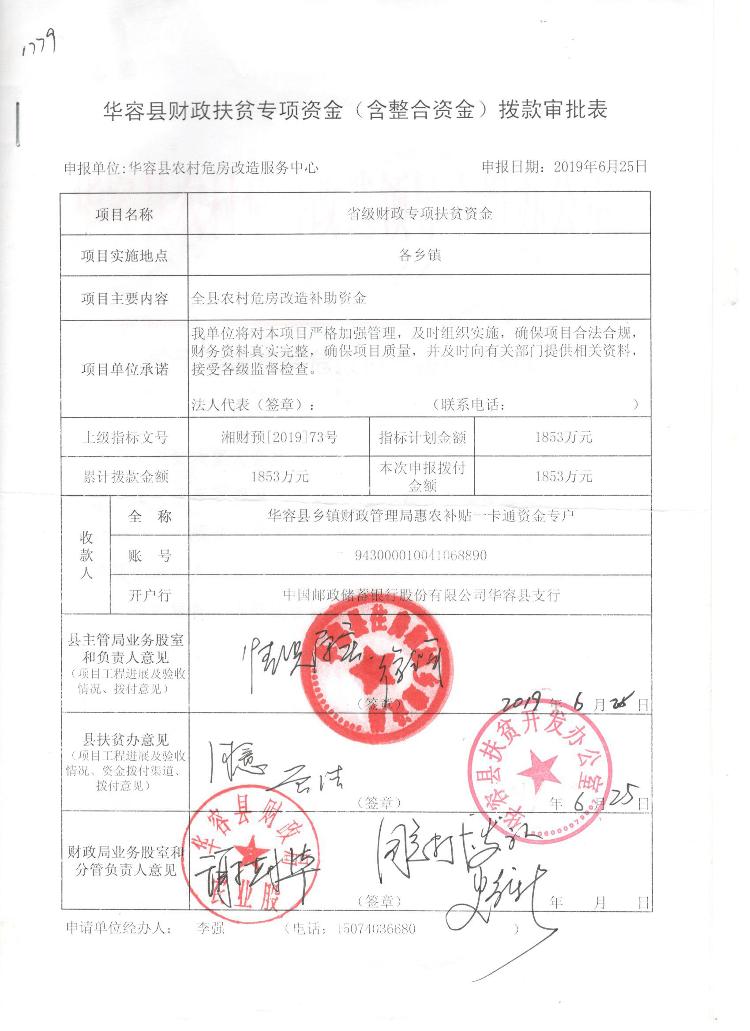 1779
华容县财政扶贫专项资金（含整合资金）拨款审批表
申报单位:华容县农村危房改造服务中心 申报日期：2019年6月25日
项目名称 省级财政专项扶贫资金
项目实施地点 各乡镇
项目主要内容 全县农村危房改造补助资金
项目单位承诺
我单位将对本项目严格加强管理，及时组织实施，确保项目合法合规，
财务资料真实完整，确保项目质量，并及时向有关部门提供相关资料，
接受各级监督检查。
法人代表（签章）： （联系电话： ）
上级指标文号 湘财预[2019]73号 指标计划金额 1853万元
累计拨款金额 1853万元 本次申报拨付金额 1853万元
收款人
全 称 华容县乡镇财政管理局惠农补贴一卡通资金专户
账 号 943000010041068890
开户行 中国邮政储蓄银行股份有限公司华容县支行
县主管局业务股室
和负责人意见
（项目工程进展及验收
情况、拨付意见）
情况属实
（签章） 2019年6月25日
县扶贫办意见
（项目工程进展及验收
情况、资金拨付渠道、
拨付意见）
同意
（签章） 年6月25日
华容县扶贫开发办公室
财政局业务股室和
分管负责人意见
华容县财政局
（签章） 年 月 日
申请单位经办人： 李强 （电话：15074036680 ）